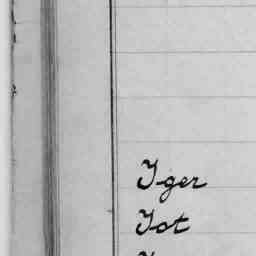 Iger
Iot